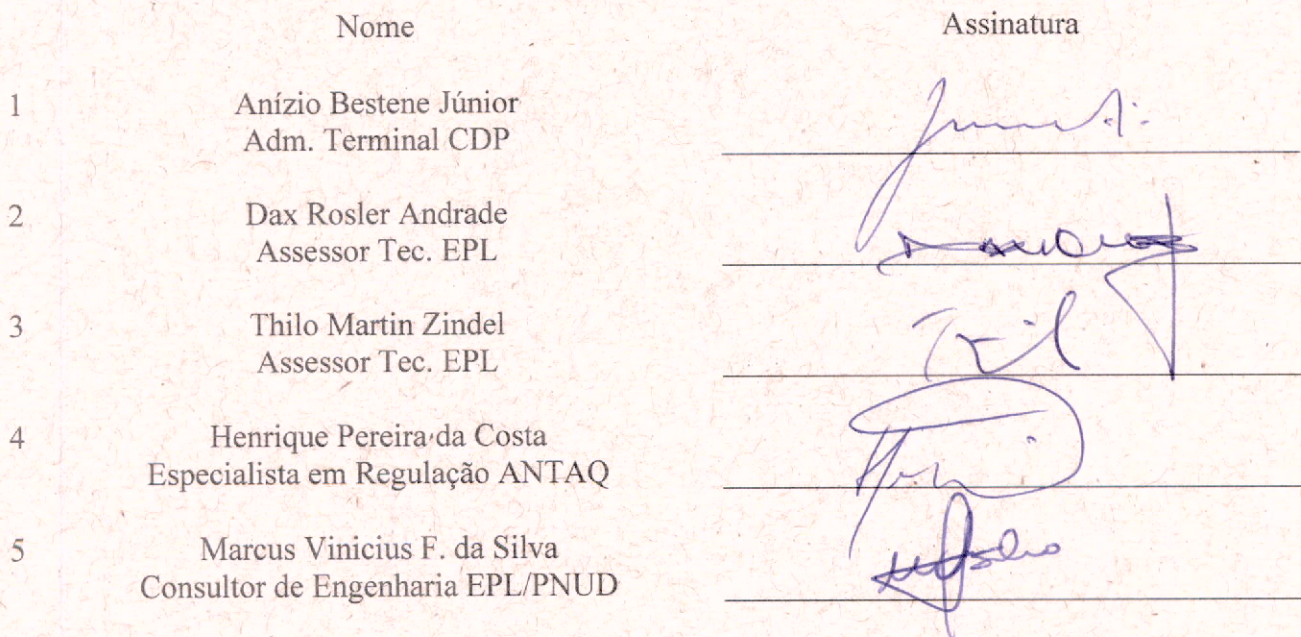 Nome Assinatura
1 Anízio Bestene Júnior
Adm. Terminal CDP
2 Dax Rosler Andrade
Assessor Tec. EPL
3 Thilo Martin Zindel
Assessor Tec. EPL
4 Henrique Pereira da Costa
Especialista em Regulação ANTAQ
5 Marcus Vinicius F. da Silva
Consultor de Engenharia EPL/PNUD